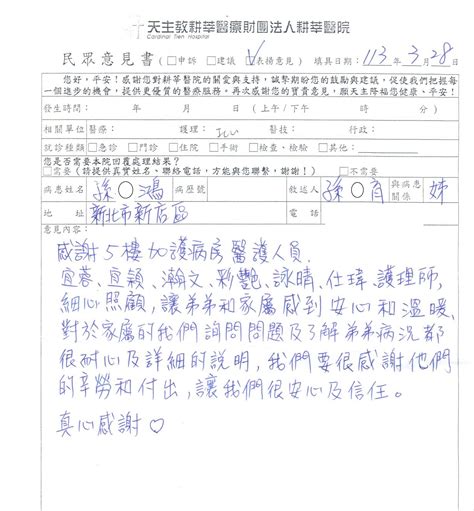 天主教耕莘醫療財團法人耕莘醫院
Cardinal Tien Hospital
民眾意見書(□申訴 □建議 ☑表揚意見) 填具日期:113年3月28日
您好,平安!感謝您對耕莘醫院的關愛與支持,誠摯期盼您的鼓勵與建議,促使我們把握每
一個進步的機會,提供更優質的醫療服務。再次感謝您的寶貴意見,願天主降福您健康、平安!
發生時間: 年 月 日(上午/下午 時 分)
相關單位 醫療: 護理:ICU 醫技: 行政:
就診種類 □急診 □門診 □住院 □手術 □檢查、檢驗 □其他:
您是否需要本院回覆處理結果?
□需要(請提供真實姓名、聯絡電話,方能與您聯繫,謝謝!) □不需要
病患姓名 孫○鴻 病歷號 敘述人 孫○育 與病患關係 姊
地址 新北市新店區 電話
意見內容:
感謝5樓加護病房醫護人員、
宜蓉、宜穎、瀚文、彩艷、詠晴、仕瑋護理師,
細心照顧,讓弟弟和家屬感到安心和溫暖、
對於家屬的我們詢問問題及了解弟弟病況都
很耐心及詳細的說明,我們要很感謝他們
的辛勞和付出,讓我們很安心及信任。
真心感謝♡